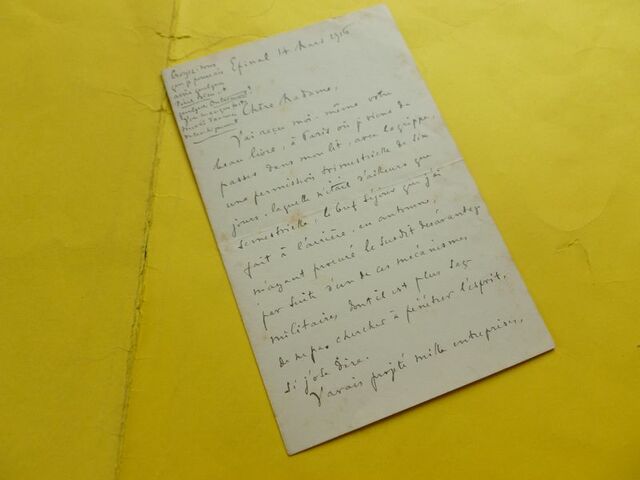 Croyez-vous
que je pourrais
avoir quelque
Epinal 14 Mars 1916
Chère Madame,
J'ai reçu moi-même votre
beau livre, à Paris où je viens de
passer dans mon lit, avec la grippe,
une permission trimestrielle de six
jours, laquelle n'était d'ailleurs que
semestrielle, le bref séjour que j'ai
fait à l'arrière, en automne,
m'ayant procuré le susdit désavantage
par suite d'un de ces mécanismes
militaires dont il est plus sage
de ne pas chercher à pénétrer l'esprit,
si j'ose dire.
J'avais projeté mille entreprises,